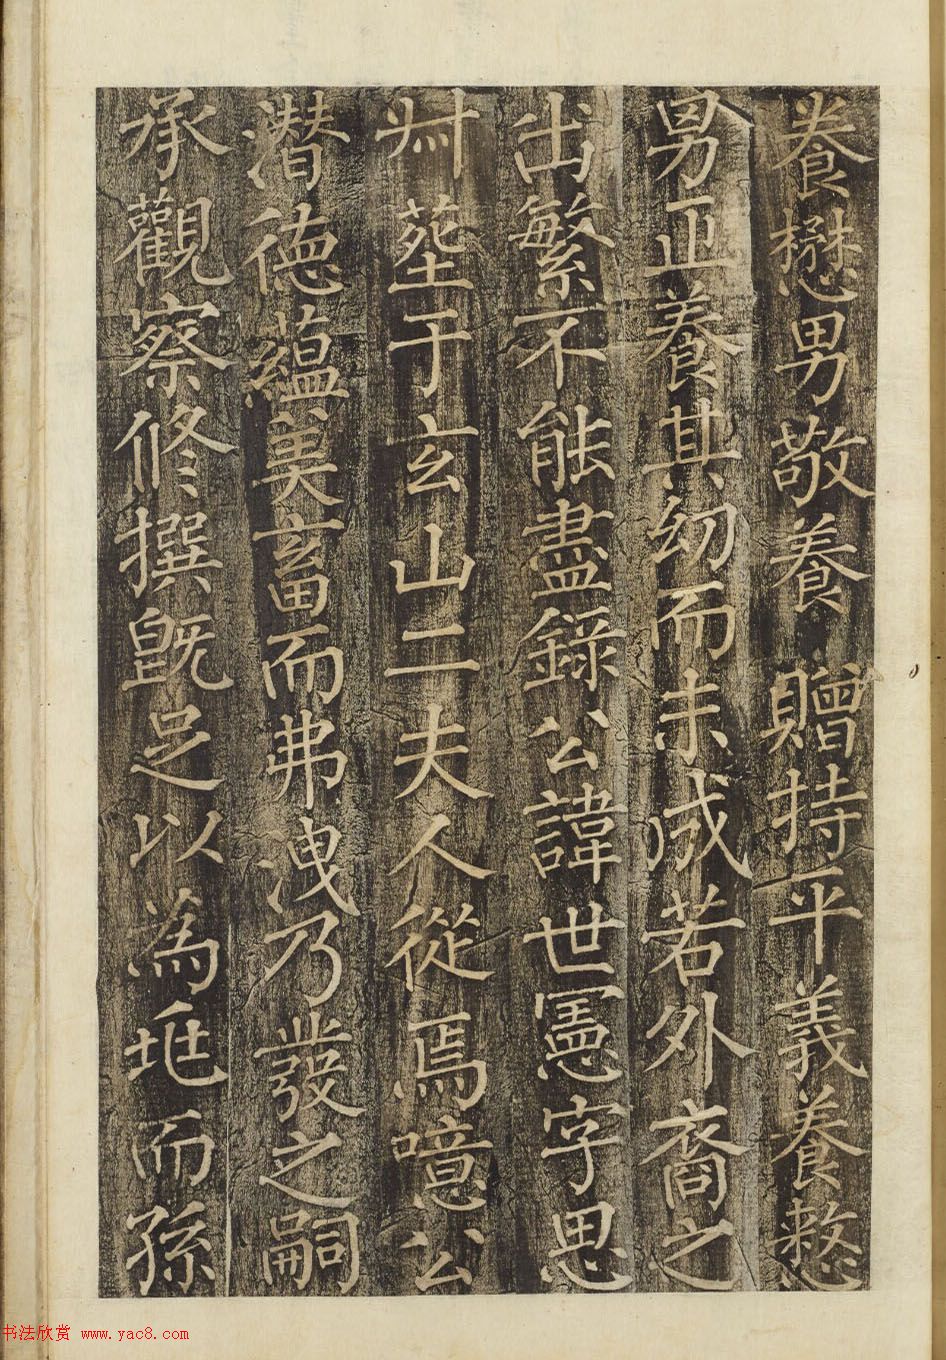 養懋男敬養贈持平義養整
男正養其幼而未成若外裔之
出繁不能盡錄公諱世冕字思
舛葬于玄山二夫人從焉噫公
潛德蘊美畜而弗洩乃發之嗣
承觀察修撰既足以為
而孫
书法欣赏 www.yac8.com